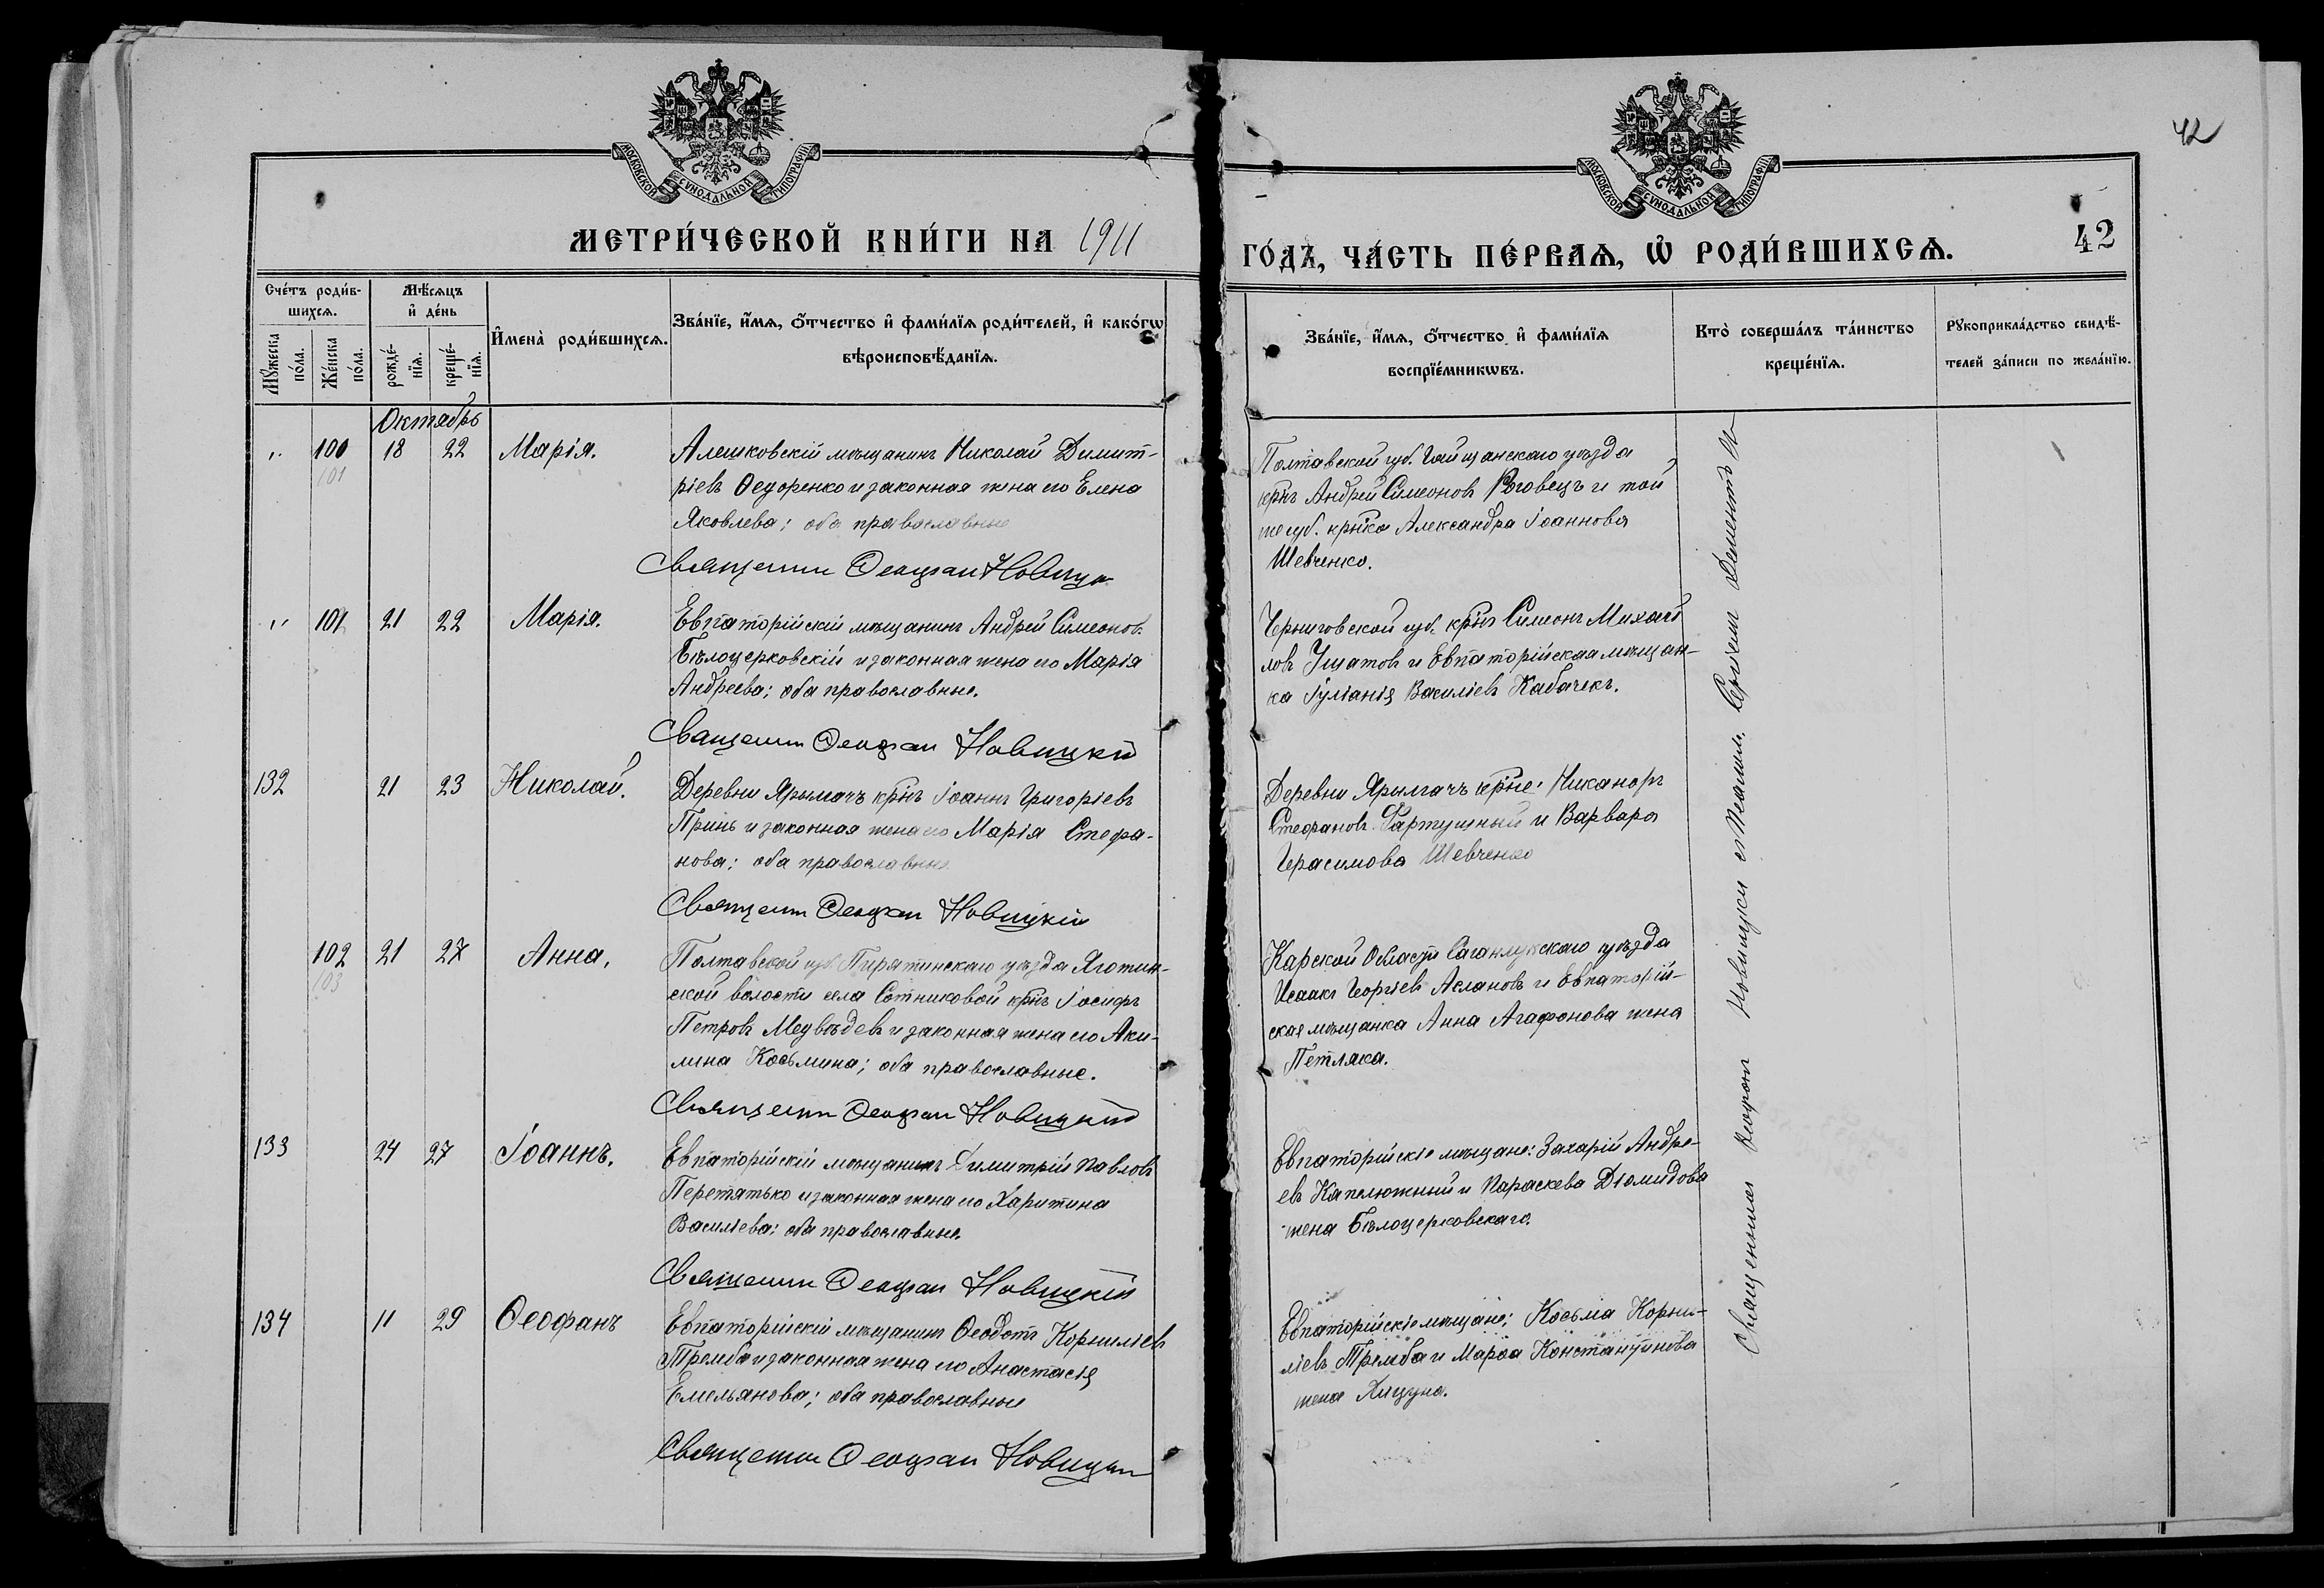 42
МОСКОВСКОЙ СѴНОДАЛЬНОЙ ТИПОГРАФІИ
МОСКОВСКОЙ СѴНОДАЛЬНОЙ ТИПОГРАФІИ
МЕТРИ́ЧЕСКОЙ КНИ́ГИ НА 1911
ГО́ДЪ, ЧА́СТЬ ПЕ́РВАѦ, Ѡ҆ РОДИ́ВШИХСѦ.
42
Сче́тъ роди́в-
шихсѧ.
Мꙋ́жеска
по́ла.
Же́нска
по́ла.
Мѣ́сѧцъ
и҆ де́нь
рожде́-
нїѧ.
креще́-
нїѧ.
И҆мена̀ роди́вшихсѧ.
Зва́нїе, и҆́мѧ, ѻ҆́тчество и҆ фами́лїѧ роди́телей, и҆ како́гѡ
вѣроисповѣ́данїѧ.
Зва́нїе, и҆́мѧ, ѻ҆́тчество и҆ фами́лїѧ
воспрїе́мникѡвъ.
Кто̀ соверша́лъ та́инство
креще́нїѧ.
Рꙋкоприкла́дство свидѣ́-
телей за́писи по жела́нїю.
Октябрь
„ 100 18 22 Марія.
101
Алешковскій мѣщанинъ Николай Димит-
ріевъ Ѳедоренко и законная жена его Елена
Яковлева; оба православные
Священник Ѳеофан Новицкій
Полтавской губ. уѣзда
крнъ Андрей Симеоновъ Роговецъ и той
же губ. крнка Александра Іоаннова
Шевченко.
„ 101 21 22 Марія.
Евпаторійскій мѣщанинъ Андрей Симеонов.
Бѣлоцерковскій и законная жена его Марія
Андреева; оба православные.
Священник Ѳеофан Новицкій
Черниговской губ. крнъ Симеонъ Михай
ловъ Ушатовъ и Евпаторійская мѣщан-
ка Іуліанія Василіевъ Кабачекъ.
132 21 23 Николай.
Деревни Ярылгачъ крнъ Іоаннъ Григоріевъ
Принь и законная жена его Марія Стефа-
нова; оба православные
Священник Ѳеофан Новицкій
Деревни Ярылгачъ крне: Никаноръ
Стефановъ Фартушный и Варвара
Герасимова Шевченко
102 21 27 Анна,
103
Полтавской губ Пирятинскаго уѣзда Яготин-
ской волости села Сотниковой крнъ Іосифъ
Петровъ Медвѣдевъ и законная жена его Аки-
лина Косьмина; оба православные.
Священник Ѳеофан Новицкій
Карской Области уѣзда
Исаакъ Георгіевъ Аслановъ и Евпаторій-
ская мѣщанка Анна Агафонова жена
Петляка.
133 24 27 Іоаннъ.
Евпаторійскій мѣщанинъ Димитрій Павловъ
Перетятько и законная жена его Харитина
Василіева; оба православные.
Священник Ѳеофан Новицкій
Евпаторійскіе мѣщане: Захарій Андре-
евъ Капелюжный и Параскева Діомидова
жена Бѣлоцерковскаго.
134 11 29 Ѳеофанъ
Евпаторійскій мѣщанинъ Ѳеодотъ Корниліевъ
Тремба и законная жена его Анастасія
Емельянова; оба православные
Священник Ѳеофан Новицкій
Евпаторійскіе мѣщане: Косьма Корни-
ліевъ Тремба и Марѳа Константинова
жена Яцуна.
Священник Ѳеофан Новицкій с Псаломщ.